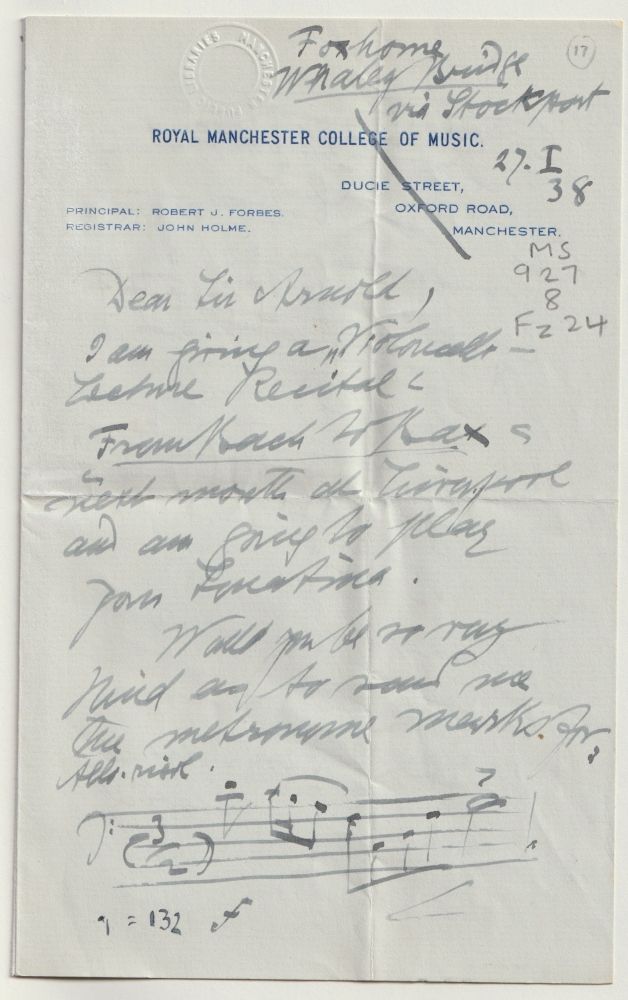 Foxhome
Whaley Bridge
via Stockport
17
LIBRARIES MANCHESTER PUBLIC
ROYAL MANCHESTER COLLEGE OF MUSIC.
27. I
38
DUCIE STREET,
OXFORD ROAD,
MANCHESTER.
PRINCIPAL: ROBERT J. FORBES.
REGISTRAR: JOHN HOLME.
MS
927
8
Fz 24
Dear Sir Arnold,
I am giving a „Violoncello –
Lecture Recital"
From Bach to Bax
next month at Liverpool
and am going to play
your Sonatina.
Would you be so very
kind as to send me
the metronome marks for
Allo. risol.
3
2
= 132 f